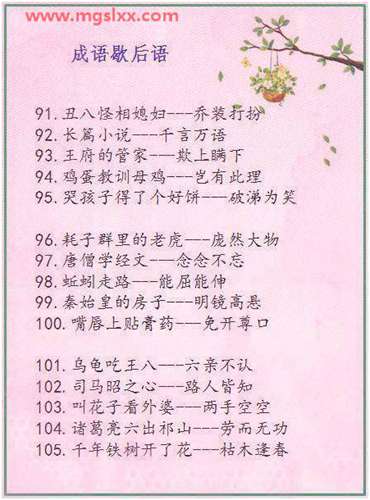 www.mgslxx.com
成语歇后语
91.丑八怪相媳妇---乔装打扮
92.长篇小说---千言万语
93.王府的管家---欺上瞒下
94.鸡蛋教训母鸡---岂有此理
95.哭孩子得了个好饼---破涕为笑
96.耗子群里的老虎---庞然大物
97.唐僧学经文---念念不忘
98.蚯蚓走路---能屈能伸
99.秦始皇的房子---明镜高悬
100.嘴唇上贴膏药---免开尊口
101.乌龟吃王八---六亲不认
102.司马昭之心---路人皆知
103.叫花子看外婆---两手空空
104.诸葛亮六出祁山---劳而无功
105.千年铁树开了花---枯木逢春